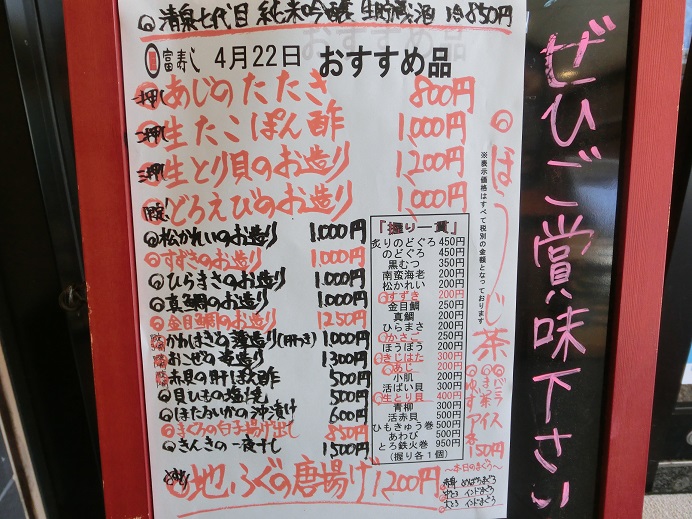 清泉七代目 純米吟醸 生貯蔵酒 850円
富寿し 4月22日 おすすめ品
一押し あじのたたき 800円
二押し 生たこぽん酢 1,000円
三押し 生とり貝のお造り 1,200円
どろえびのお造り 1,000円
松かれいのお造り 1,000円
すずきのお造り 1,000円
ひらまさのお造り 1,000円
真鯛のお造り 1,000円
金目鯛のお造り 1250円
かわはぎの薄造り(肝つき) 1,000円
おこぜの薄造り 1,300円
赤貝の肝ぽん酢 500円
貝ひもの塩焼 500円
ほたるいかの沖漬け 600円
まぐろの白子揚げ出し 850円
きんきの一夜干し 1,500円
地ふぐの唐揚げ 1,200円
『握り一貫』
炙りのどぐろ 450円
のどぐろ 450円
黒むつ 350円
南蛮海老 200円
松かれい 200円
すずき 200円
金目鯛 250円
真鯛 200円
ひらまさ 200円
かさご 250円
ほうぼう 200円
きじはた 300円
あじ 200円
小肌 200円
活ばい貝 300円
生とり貝 400円
青柳 200円
活赤貝 500円
ひもきゅう巻 500円
あわび 500円
とろ鉄火巻 950円
(握り各1個)
※表示価格はすべて税別の金額となっております
ぼうじ茶
バニラ
まっ茶
ゆず
アイス
150円
~本日のまぐろ~
赤身 めばちまぐろ
中とろ インドまぐろ
大とろ インドまぐろ
ぜひご賞味下さい